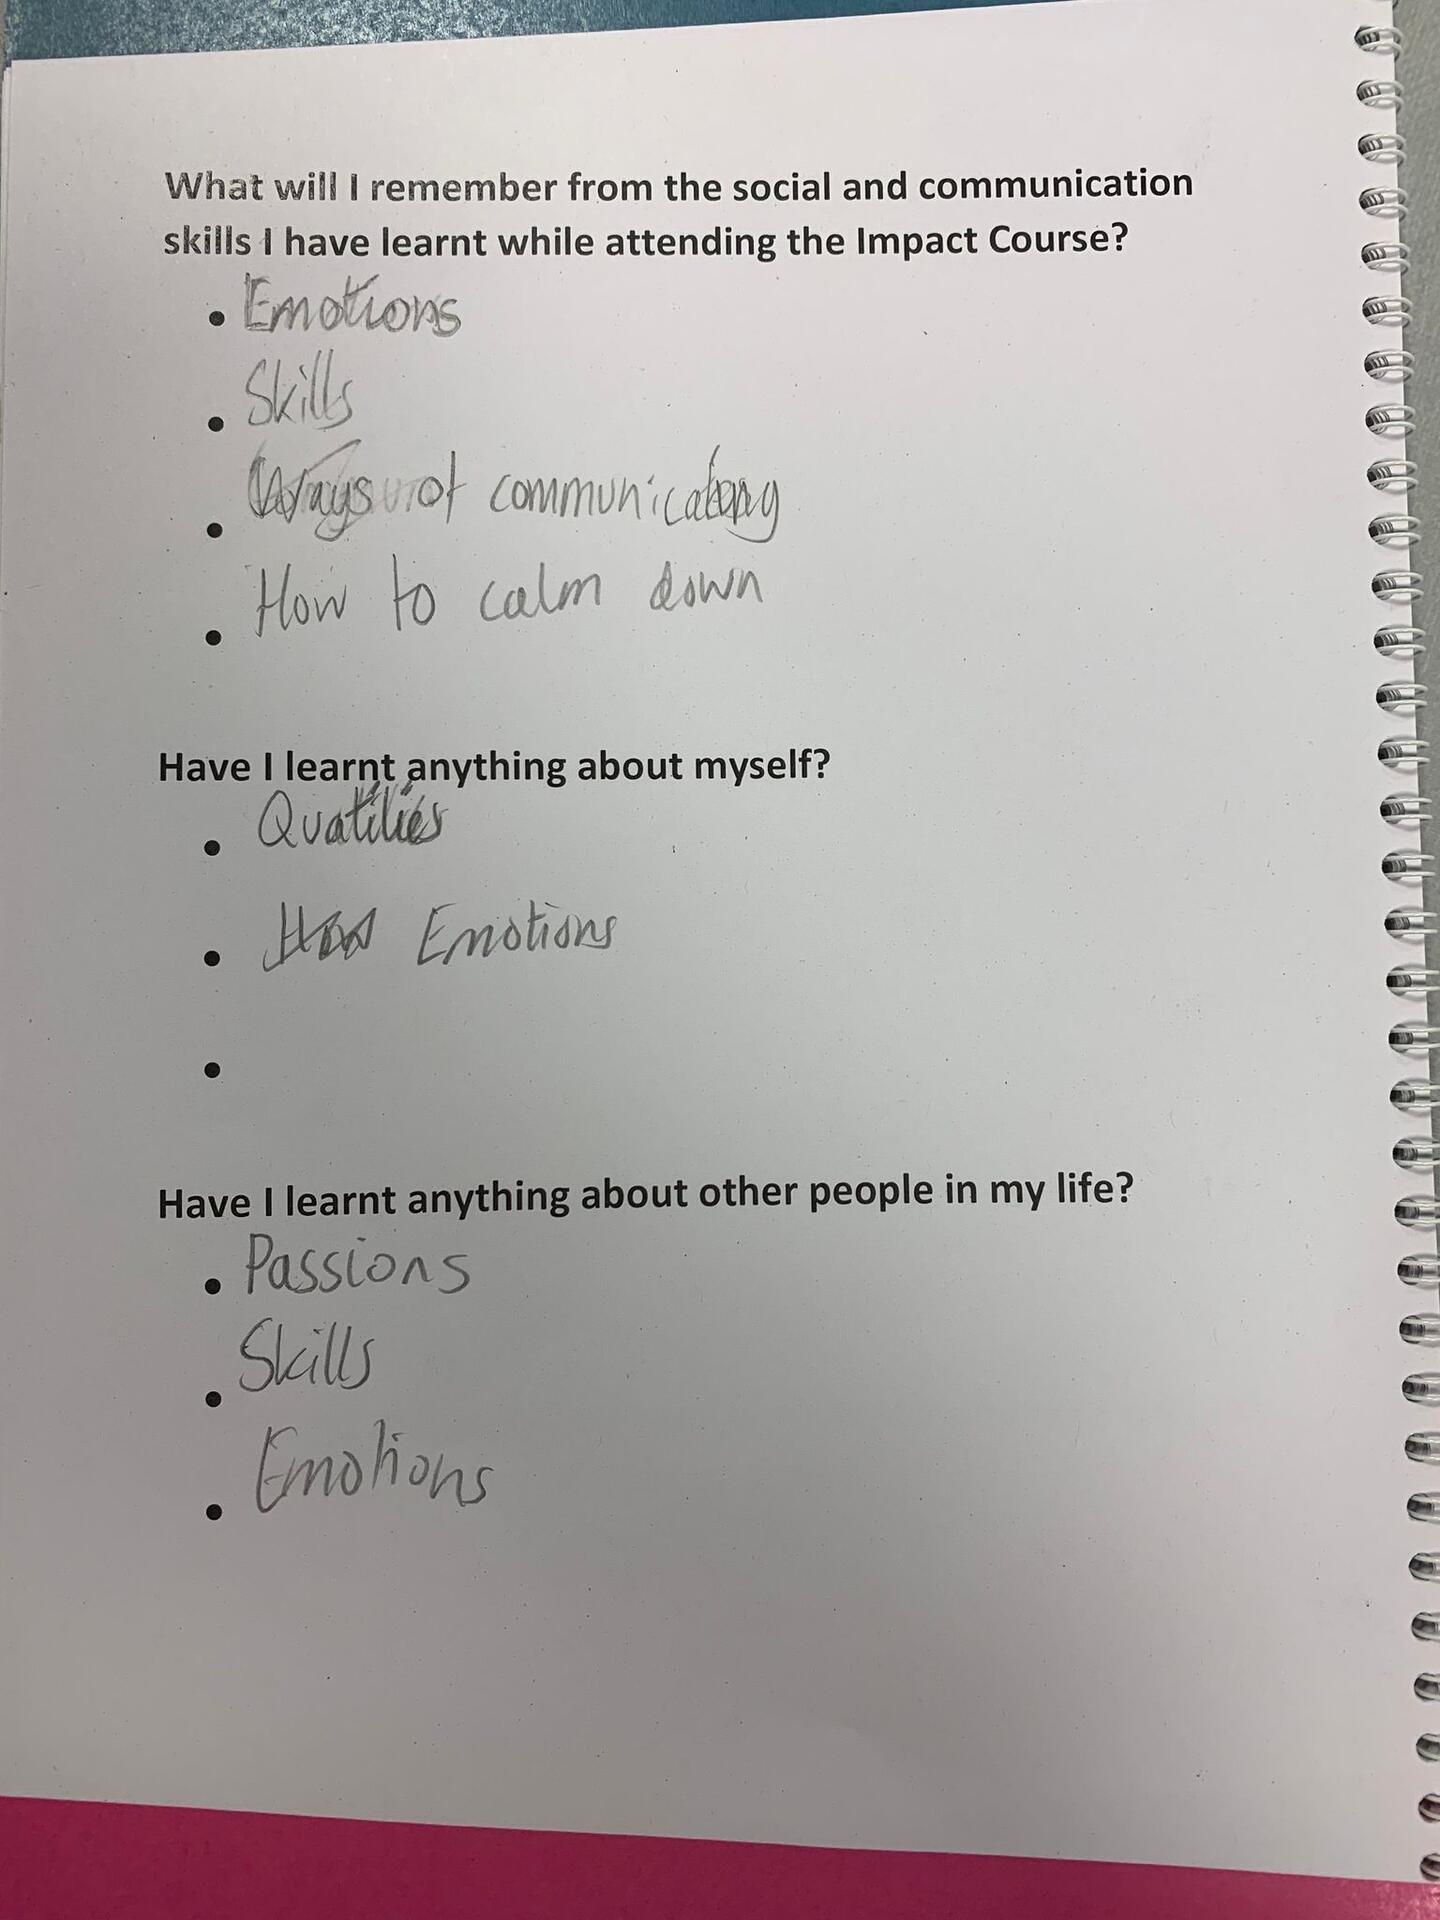 What will I remember from the social and communication
skills I have learnt while attending the Impact Course?
• Emotions
• Skills
• Ways of communicating
• How to calm down
Have I learnt anything about myself?
• Quatilies
• Emotions
•
Have I learnt anything about other people in my life?
• Passions
• Skills
• Emotions